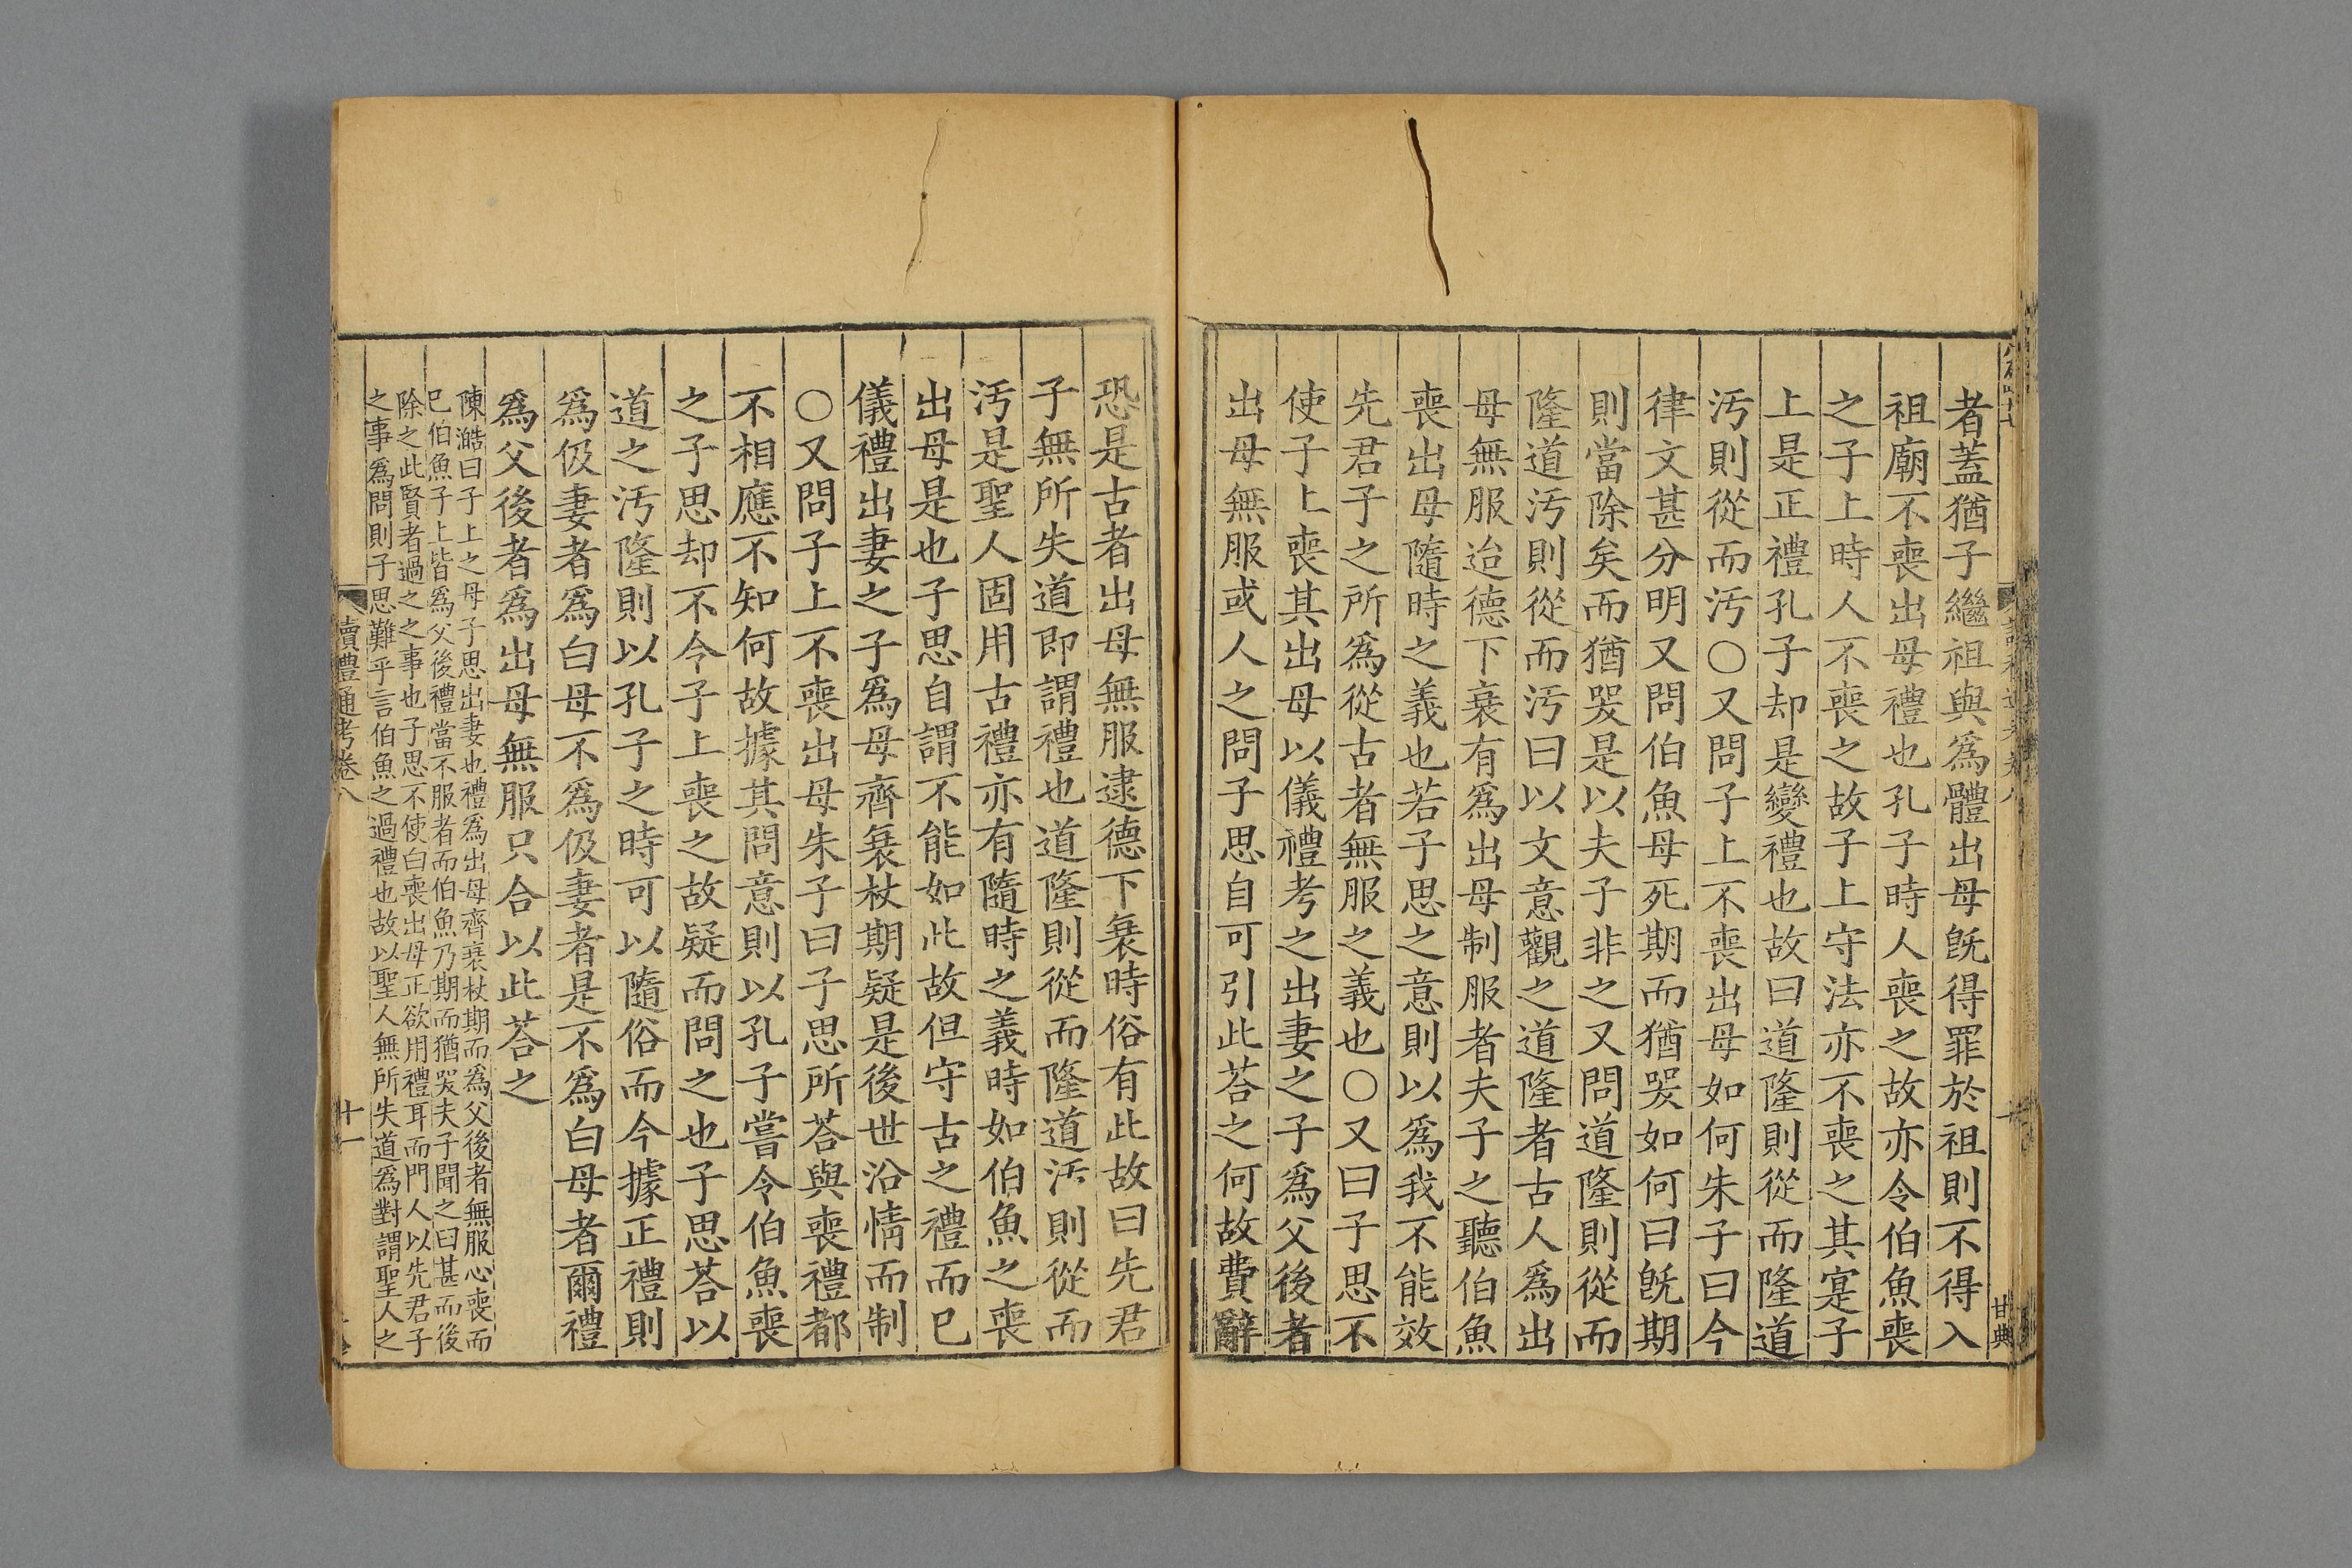 者蓋猶子繼祖與爲體出母旣得罪於祖則不得入
祖廟不喪出母禮也孔子時人喪之故亦令伯魚喪
之子上時人不喪之故子上守法亦不喪之其寔子
上是正禮孔子却是變禮也故曰道隆則從而隆道
汚則從而汚○又問子上不喪出母如何朱子曰今
律文甚分明又問伯魚母死期而猶哭如何曰旣期
則當除矣而猶哭是以夫子非之又問道隆則從而
隆道汚則從而汚曰以文意觀之道隆者古人爲出
母無服迨德下衰有爲出母制服者夫子之聽伯魚
喪出母隨時之義也若子思之意則以爲我不能效
先君子之所爲從古者無服之義也○又曰子思不
使子上喪其出母以儀禮考之出妻之子爲父後者
出母無服或人之問子思自可引此荅之何故費辭
甘典
恐是古者出母無服逮德下衰時俗有此故曰先君
子無所失道即謂禮也道隆則從而隆道汚則從而
汚是聖人固用古禮亦有隨時之義時如伯魚之喪
出母是也子思自謂不能如此故但守古之禮而已
儀禮出妻之子爲母齊衰杖期疑是後世沿情而制
○又問子上不喪出母朱子曰子思所荅與喪禮都
不相應不知何故據其問意則以孔子嘗令伯魚喪
之子思却不令子上喪之故疑而問之也子思荅以
道之汚隆則以孔子之時可以隨俗而今據正禮則
爲伋妻者爲白母不爲伋妻者是不爲白母者爾禮
爲父後者爲出母無服只合以此荅之
陳澔曰子上之母子思出妻也禮爲出母齊衰杖期而爲父後者無服心喪而
已伯魚子上皆爲父後禮當不服者而伯魚乃期而猶哭夫子聞之曰甚而後
除之此賢者過之之事也子思不使白喪出母正欲用禮耳而門人以先君子
之事爲問則子思難乎言伯魚之過禮也故以聖人無所失道爲對謂聖人之
讀禮通考卷八
十一